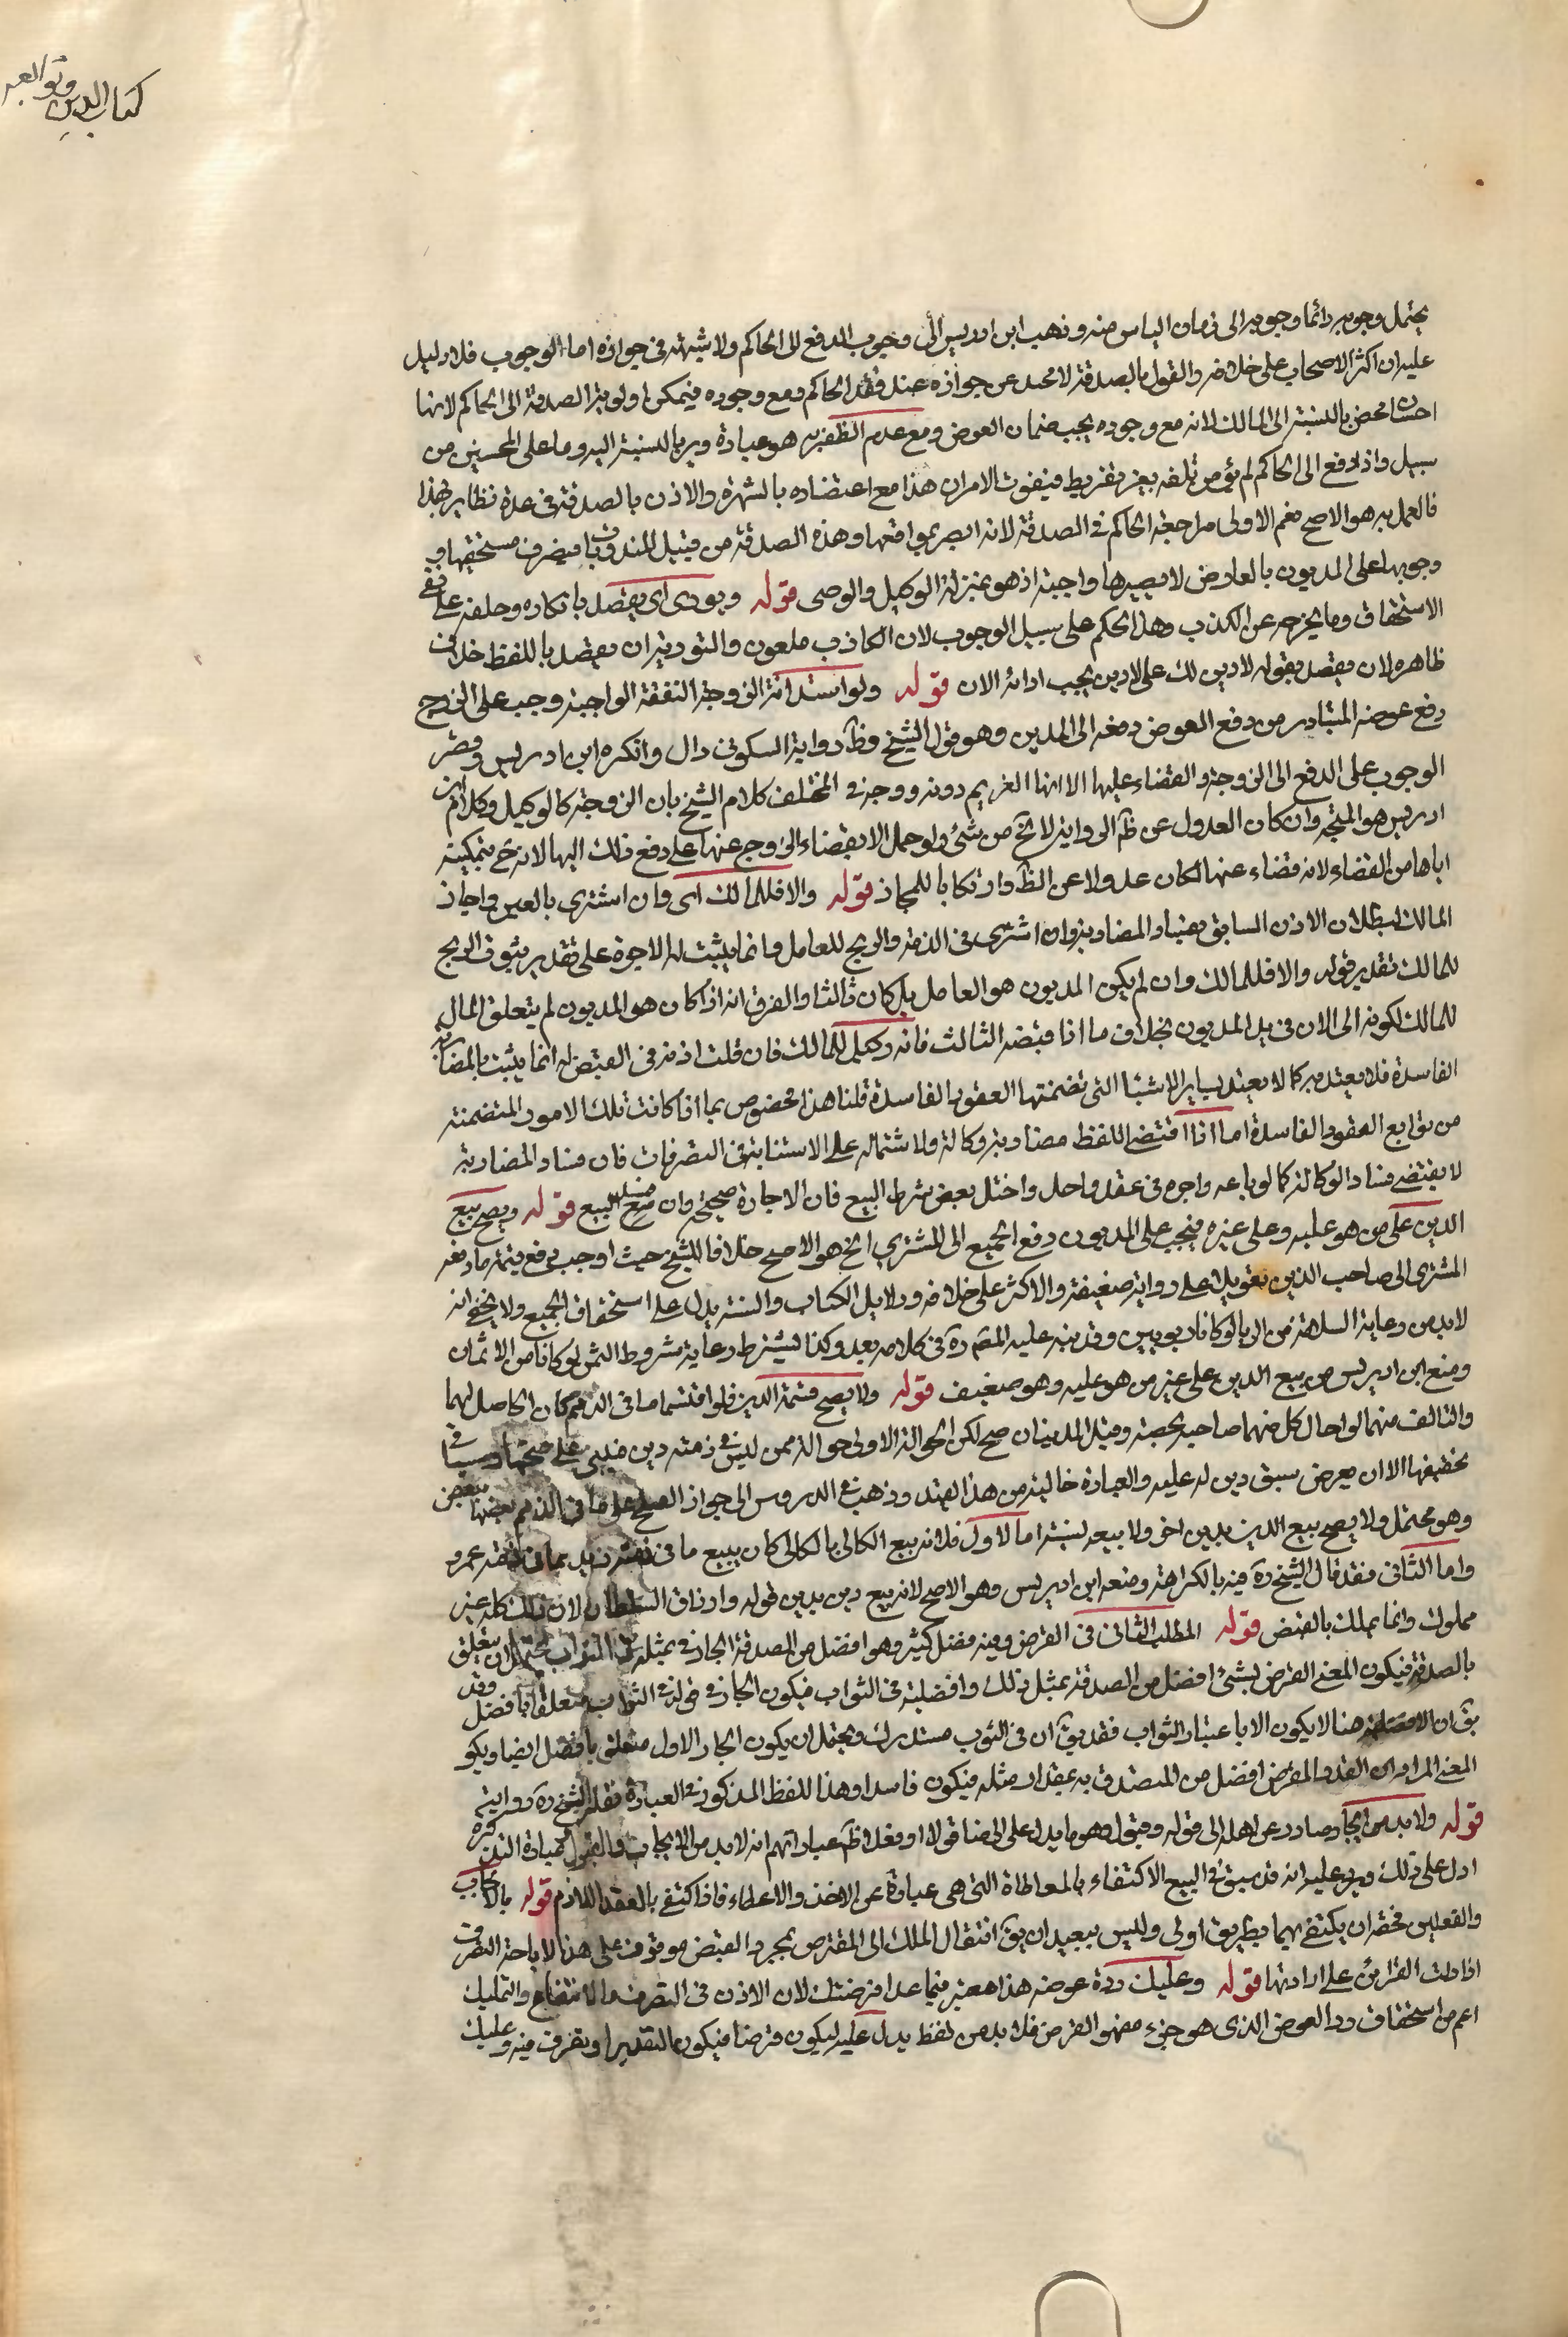 كتاب الدين وتوابعه
يحتمل وجوبه دائما وجوبه الى زمان الياس منه وذهب ابن ادريس الى وجوب الدفع الى الحاكم ولا شبهة في جوازه اما الوجوب فلا دليل
عليه ان اكثر الاصحاب على خلافه والقول بالصدقة لا محيد عن جوازه عند فقد الحاكم ومع وجوده فيمكن اولوية الصدقة الى الحاكم لانها
احسان محض بالنسبة الى المالك لانه مع وجوده يجب ضمان العوض ومع عدم الظفر به هو عبادة وبر بالنسبة اليه وما على المحسنين من
سبيل واذا دفع الى الحاكم لم يؤمن تلفه بغير تفريط فيفوت الامران هذا مع اعتضاده بالشهرة والاذن بالصدقة في عدة نظاير لهذا
فالعمل به هو الاصح نعم الاولى مراجعة الحاكم في الصدقة لانه ابصر بمواقعها وهذه الصدقة من قبيل المندوبة فمصرف مستحقها و
وجوبها على المديون بالعارض لا يصيرها واجبة اذ هو بمنزلة الوكيل والوصى قوله ويورى اى يقصد بانكاره وحلفه على نفى
الاستحقاق وما يخرجه عن الكذب وهذا الحكم على سبيل الوجوب لان الكاذب ملعون والتورية ان يقصد باللفظ خلاف
ظاهره لان يقصد بقوله لا دين لك على لا دين يجب ادائه الان قوله ولو استدانة الزوجة النفقة الواجبة وجب على الزوج
دفع عوضه المتبادر من دفع العوض دفعه الى المدين وهو قول الشيخ وظ رواية السكونى دال وانكره ابن ادريس وقصر
الوجوب على الدفع الى الزوجة والقضاء عليها الا انها الغريم دونه ووجه في المختلف كلام الشيخ بان الزوجة كالوكيل وكلام ابن
ادريس هو المتجه وان كان العدول عن ظ الرواية لا يخ من شئ ولو حمل الا يقضاء الزوج عنها على دفع ذلك اليها لانه ح يمكنه
اياها من القضاء لانه قضاء عنها لكان عدولا عن الظ وارتكابا للمجاز قوله والا فللمالك اى وان اشترى بالعين واجاز
المالك لبطلان الاذن السابق بفساد المضاربة وان اشترى في الذمة والربح للعامل وانما يثبت له الاجرة على تقدير ثبوت الربح
للمالك تقدير قوله والا فللمالك وان لم يكن المديون هو العامل بل كان ثالثا والفرق انه اذا كان هو المديون لم يتعلق المال
للمالك لكونه الى الان في يد المديون بخلاف ما اذا قبضه الثالث فانه وكيل للمالك فان قلت اذنه في القبض له انما يثبت بالمضاربة
الفاسدة فلا يعتد به كما لا يعتد بساير الاشيا التى تضمنتها العقود الفاسدة قلنا هذا مخصوص بما اذا كانت تلك الامور المتضمنة
من توابع العقود الفاسدة اما اذا اقتضى اللفظ مضاربة وكالة ولا شتماله على الاستنابة في التصرفات فان فساد المضاربة
لا يقتضى فساد الوكالة كما لو باعه واجره في عقد واحد واختل بعض شرط البيع فان الاجارة صحيحة وان فسد البيع قوله ويصح بيع
الدين على من هو عليه وعلى غيره فيجب على المديون دفع الجميع الى المشترى الخ هو الاصح خلافا للشيخ حيث اوجب دفع قيمة ما دفعه
المشترى الى صاحب الدين تعويلا على رواية ضعيفة والاكثر على خلافه ودلايل الكتاب والسنة يدل على استحقاق الجميع ولا يخفى انه
لا بد من رعاية السلامة من الربا لو كانا ربويين وقد نبه عليه المص ره في كلامه بعد وكذا يشترط رعاية شروط الثمن لو كانا من الاثمان
ومنع ابن ادريس من بيع الدين على غير من هو عليه وهو ضعيف قوله ولا يصح قسمة الدين فلو اقتسما ما في الذمم كان الحاصل لهما
والتالف منهما لو احال كل منهما صاحبه بحصته وقبل المدينان صح لكن الحوالة الاولى حوالة ممن ليس في ذمته دين فليبن على صحتها وسياتى
تحقيقها الا ان يعرض سبق دين له عليه والعبارة خالية من هذا القيد وذهب في الدروس الى جواز الصلح على ما في الذمم بعضها ببعض
وهو محتمل ولا يصح بيع الدين بدين اخر ولا بيعه نسية اما الاول فلانه بيع الكالى بالكالى كان يبيع ما في ذمة زيد بما في ذمة عمرو
واما الثانى فقد قال الشيخ ره فيه بالكراهة ومنعه ابن ادريس وهو الاصح لانه بيع دين بدين قوله وارزاق السلطان لان ذلك كله غير
مملوك وانما يملك بالقبض قوله المطلب الثانى في القرض وفيه فضل كثير وهو افضل من الصدقة الجار في بمثله في الثواب يحتمل ان يتعلق
بالصدقة فيكون المعنى القرض لشئ افضل من الصدقة بمثل ذلك وافضلية في الثواب فيكون الجار في قوله في الثواب متعلقا بافضل وقد
يق ان الافضلية هنا لا يكون الا باعتبار الثواب فقد يق ان في الثوب مستدرك ويحتمل ان يكون الجار الاول متعلق بافضل ايضا ويكو
المعنى المراد ان القدر المقرض افضل من المتصدق به بمقدار مثله فيكون فاسدا وهذا اللفظ المذكور في العبارة نقله الشيخ ره رواية
قوله ولا بد من ايجاب صادر عن اهله الى قوله وقبول وهو ما يدل على الرضا قولا او فعلا ظ عباراتهم انه لا بد من الايجاب والقبول عبارة التذكرة
ادل على ذلك ويرد عليه انه قد سبق في البيع الاكتفاء بالمعاطاة التى هى عبارة عن الاخذ والاعطاء فاذا اكتفى بالعقد اللازم قوله بالايجاب
والفعلين فحقه ان يكتفى بهما بطريق اولى وليس ببعيد ان يق انتقال الملك الى المقترض بمجرد القبض موقوف على هذا لا اباحة التصرفات
اذا دلت القراين على ارادتها قوله وعليك رده عوضه هذا معتبر فيما عدا اقرضتك لان الاذن في التصرف والانتفاع والتمليك
اعم من استحقاق رد العوض الذى هو جزء مفهو القرض فلا بد من لفظ يدل عليه ليكون قرضا فيكون التقدير او تصرف فيه وعليك